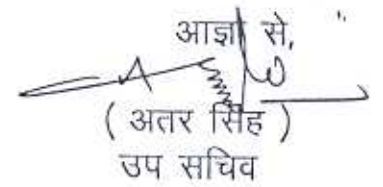 आज्ञा से,
( अतर सिंह )
उप सचिव